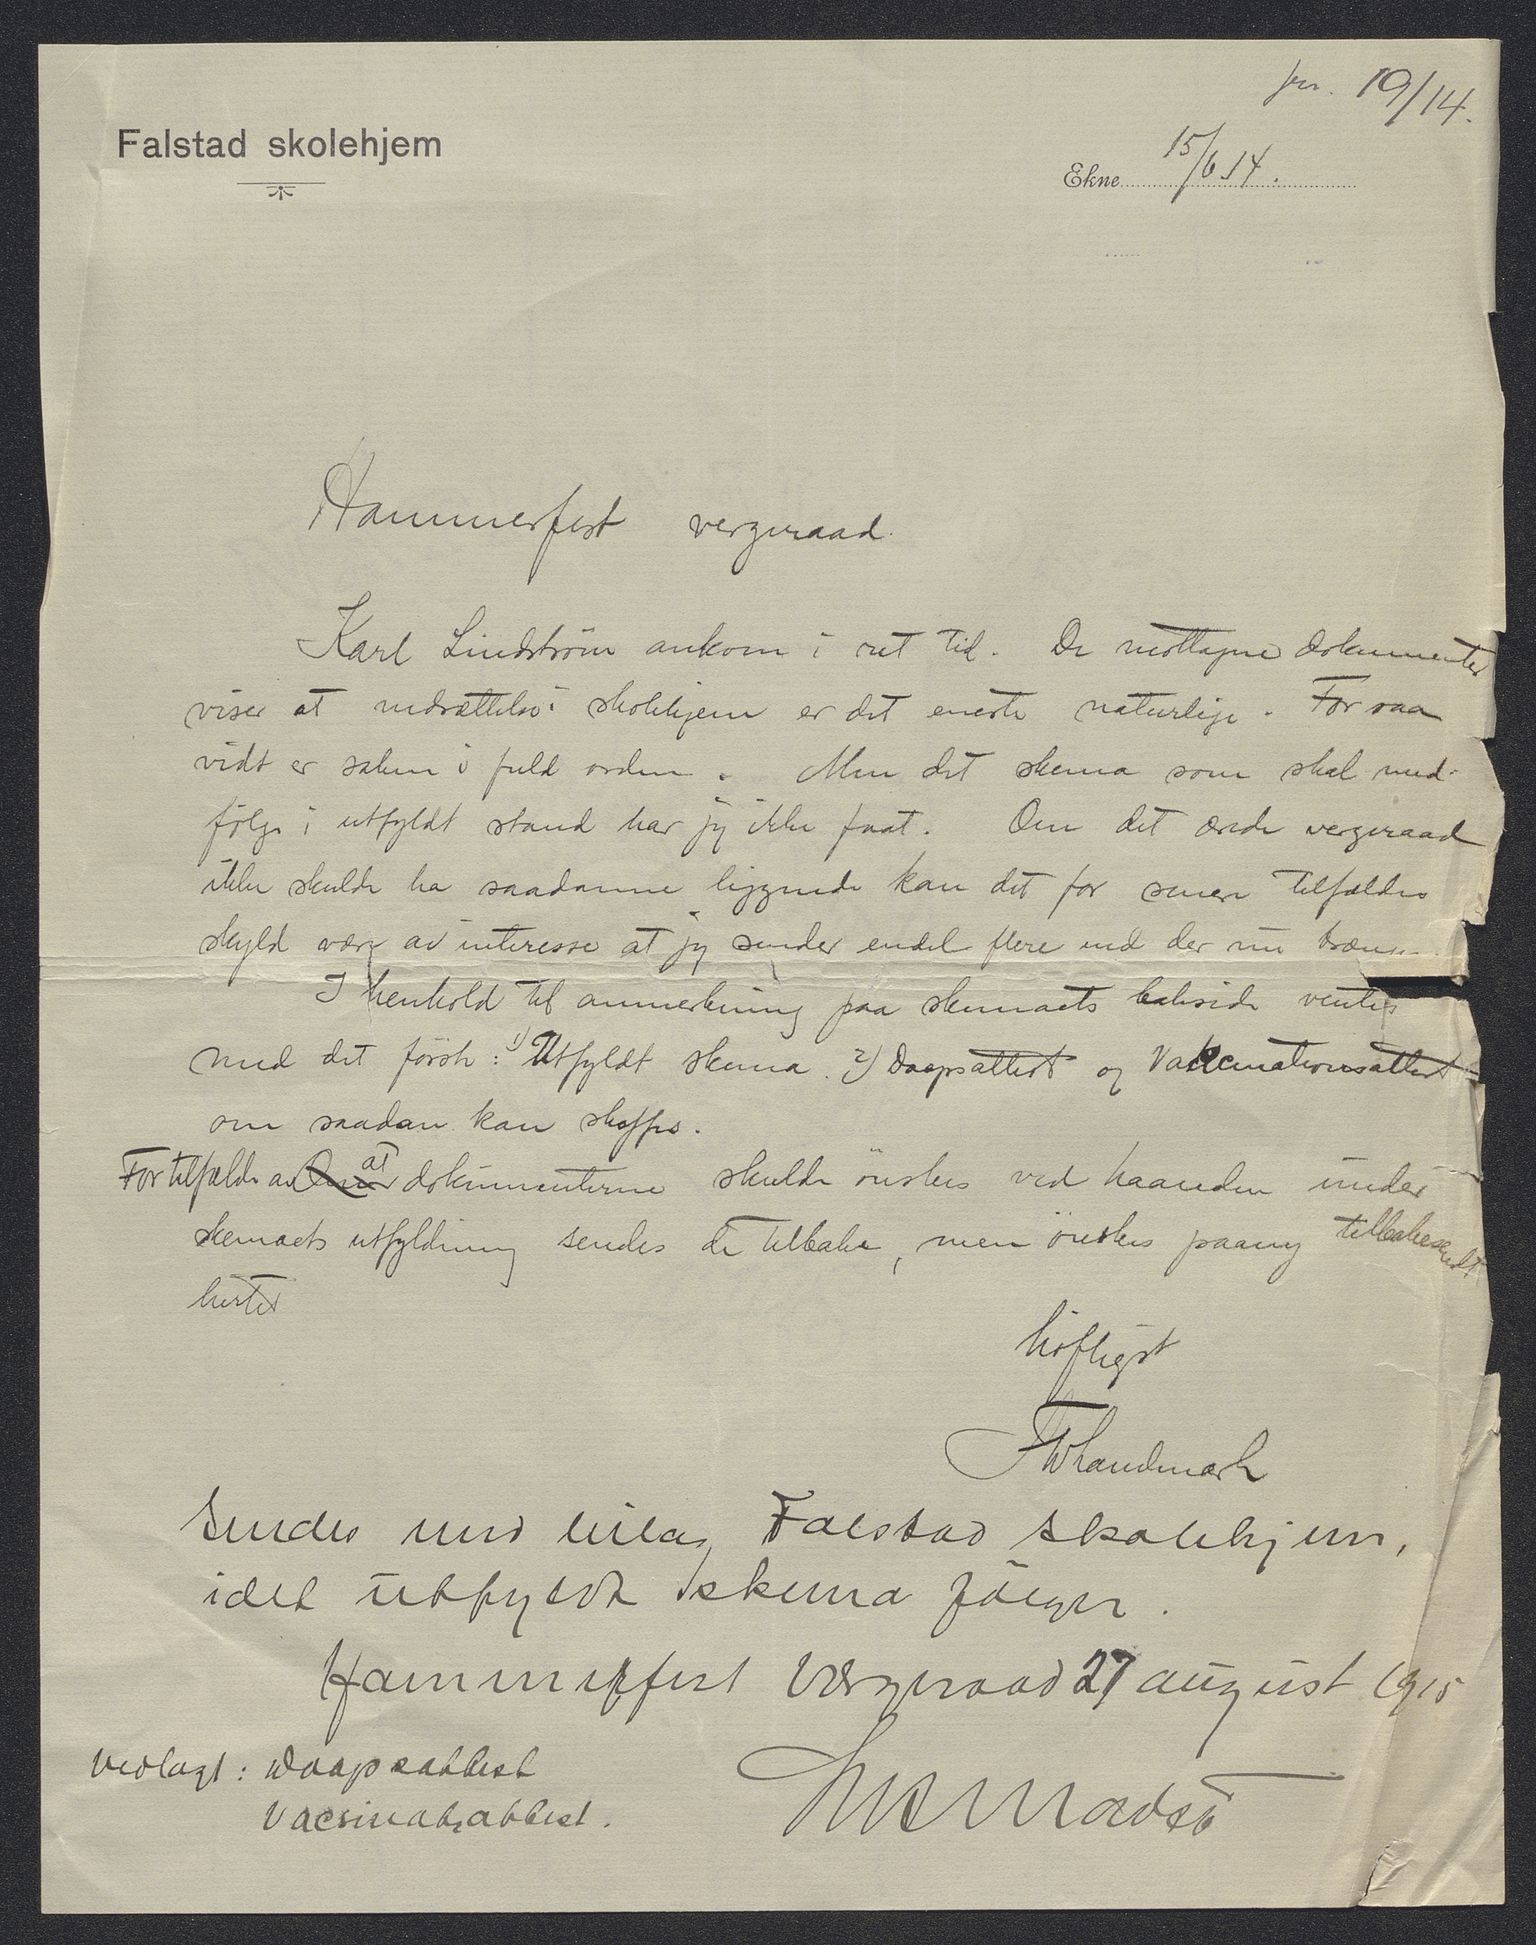 jnr. 19/14.
Falstad skolehjem
Ekne 15/6 14.
Hammerfest vergeraad.
Karl Lindstrøm ankom i ret tid. De mottagne dokumenter
viser at indsættelse i skolehjem er det eneste naturlige. For saa
vidt er saken i fuld orden. Men det skema som skal med-
følge i utfyldt stand har jeg ikke faat. Om det ærede vergeraad
ikke skulde ha saadanne liggende kan det for senere tilfældes
skyld være av interesse at jeg sender endel flere end der nu
I henhold til anmerkning paa skemaets bakside ventes
med det første: 1) Utfyldt skema. 2) Daapsattest og Vaccinationsattest
om saadan kan skaffes.
For tilfælde av at dokumenterne skulde ønskes ved haanden under
skemaets utfyldning sendes de tilbake, men ønskes paany tilbakesendt
hertil
høfligst
Landmark
Sendes med bilag Falstad skolehjem,
idet utfyldt skema følger.
Hammerfest Værgeraad 27 august 1915
Madsø
Vedlagt: Daapsattest
Vacsinats,attest.